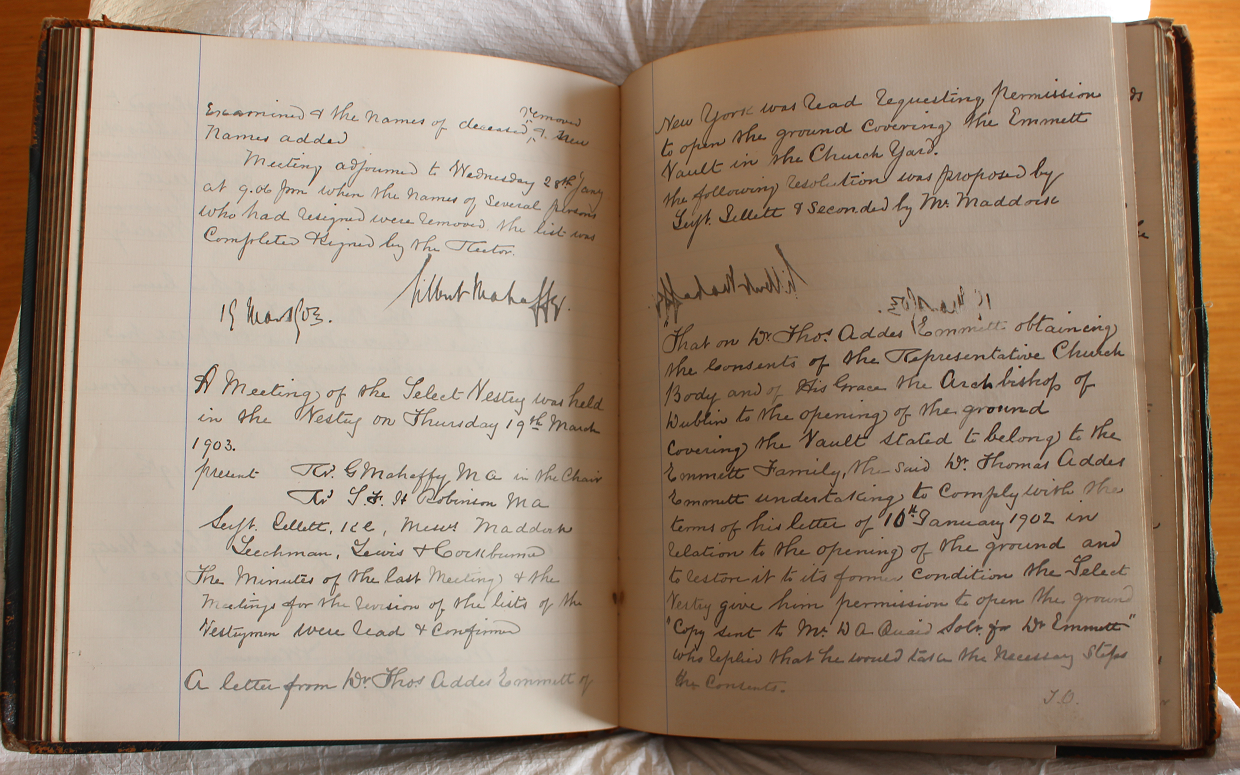 Examined & the names of deceased removed & new
names added
Meeting adjourned to Wednesday 28th Jany
at 9.06 pm when the names of several persons
who had resigned were removed the list was
Completed & signed by the Rector.
Gilbert Mahaffy.
19 Mar/03.
A Meeting of the Select Vestry was held
in the Vestry on Thursday 19th March
1903.
present Rev. G Mahaffy M A in the Chair
Revd S. F. H Robinson M A
Serjt. Jellett, K C, Messrs Maddock
Leechman, Lewis & Cockburn
The Minutes of the last Meeting & the
Meetings for the revision of the lists of the
Vestrymen were read & Confirmed
A letter from Dr Thos Addes Emmett of
New York was read requesting permission
to open the ground covering the Emmett
Vault in the Church Yard.
the following resolution was proposed by
Serjt. Jellett & Seconded by Mr. Maddock
That on Dr Thos Addes Emmett obtaining
the Consents of the Representative Church
Body and of His Grace the Archbishop of
Dublin to the opening of the ground
covering the Vault stated to belong to the
Emmett Family, the said Dr. Thomas Addes
Emmett undertaking to Comply with the
terms of his letter of 10th January 1902 in
relation to the opening of the ground and
to restore it to its former Condition the Select
Vestry give him permission to open the ground
"Copy sent to Mr. D A Quaid Solr for Dr Emmett"
who replied that he would take the necessary Steps
the Consents.
T.O.